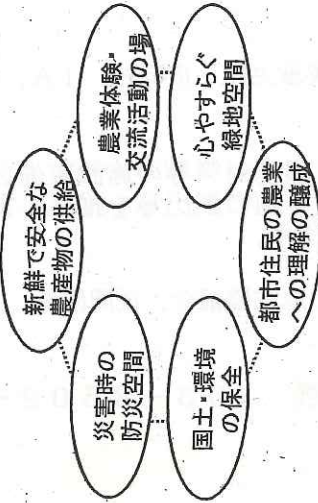 新鮮で安全な
農産物の供給
農業体験・
交流活動の場
心やすらぐ
緑地空間
都市住民の農業
への理解の醸成
国土・環境
の保全
災害時の
防災空間